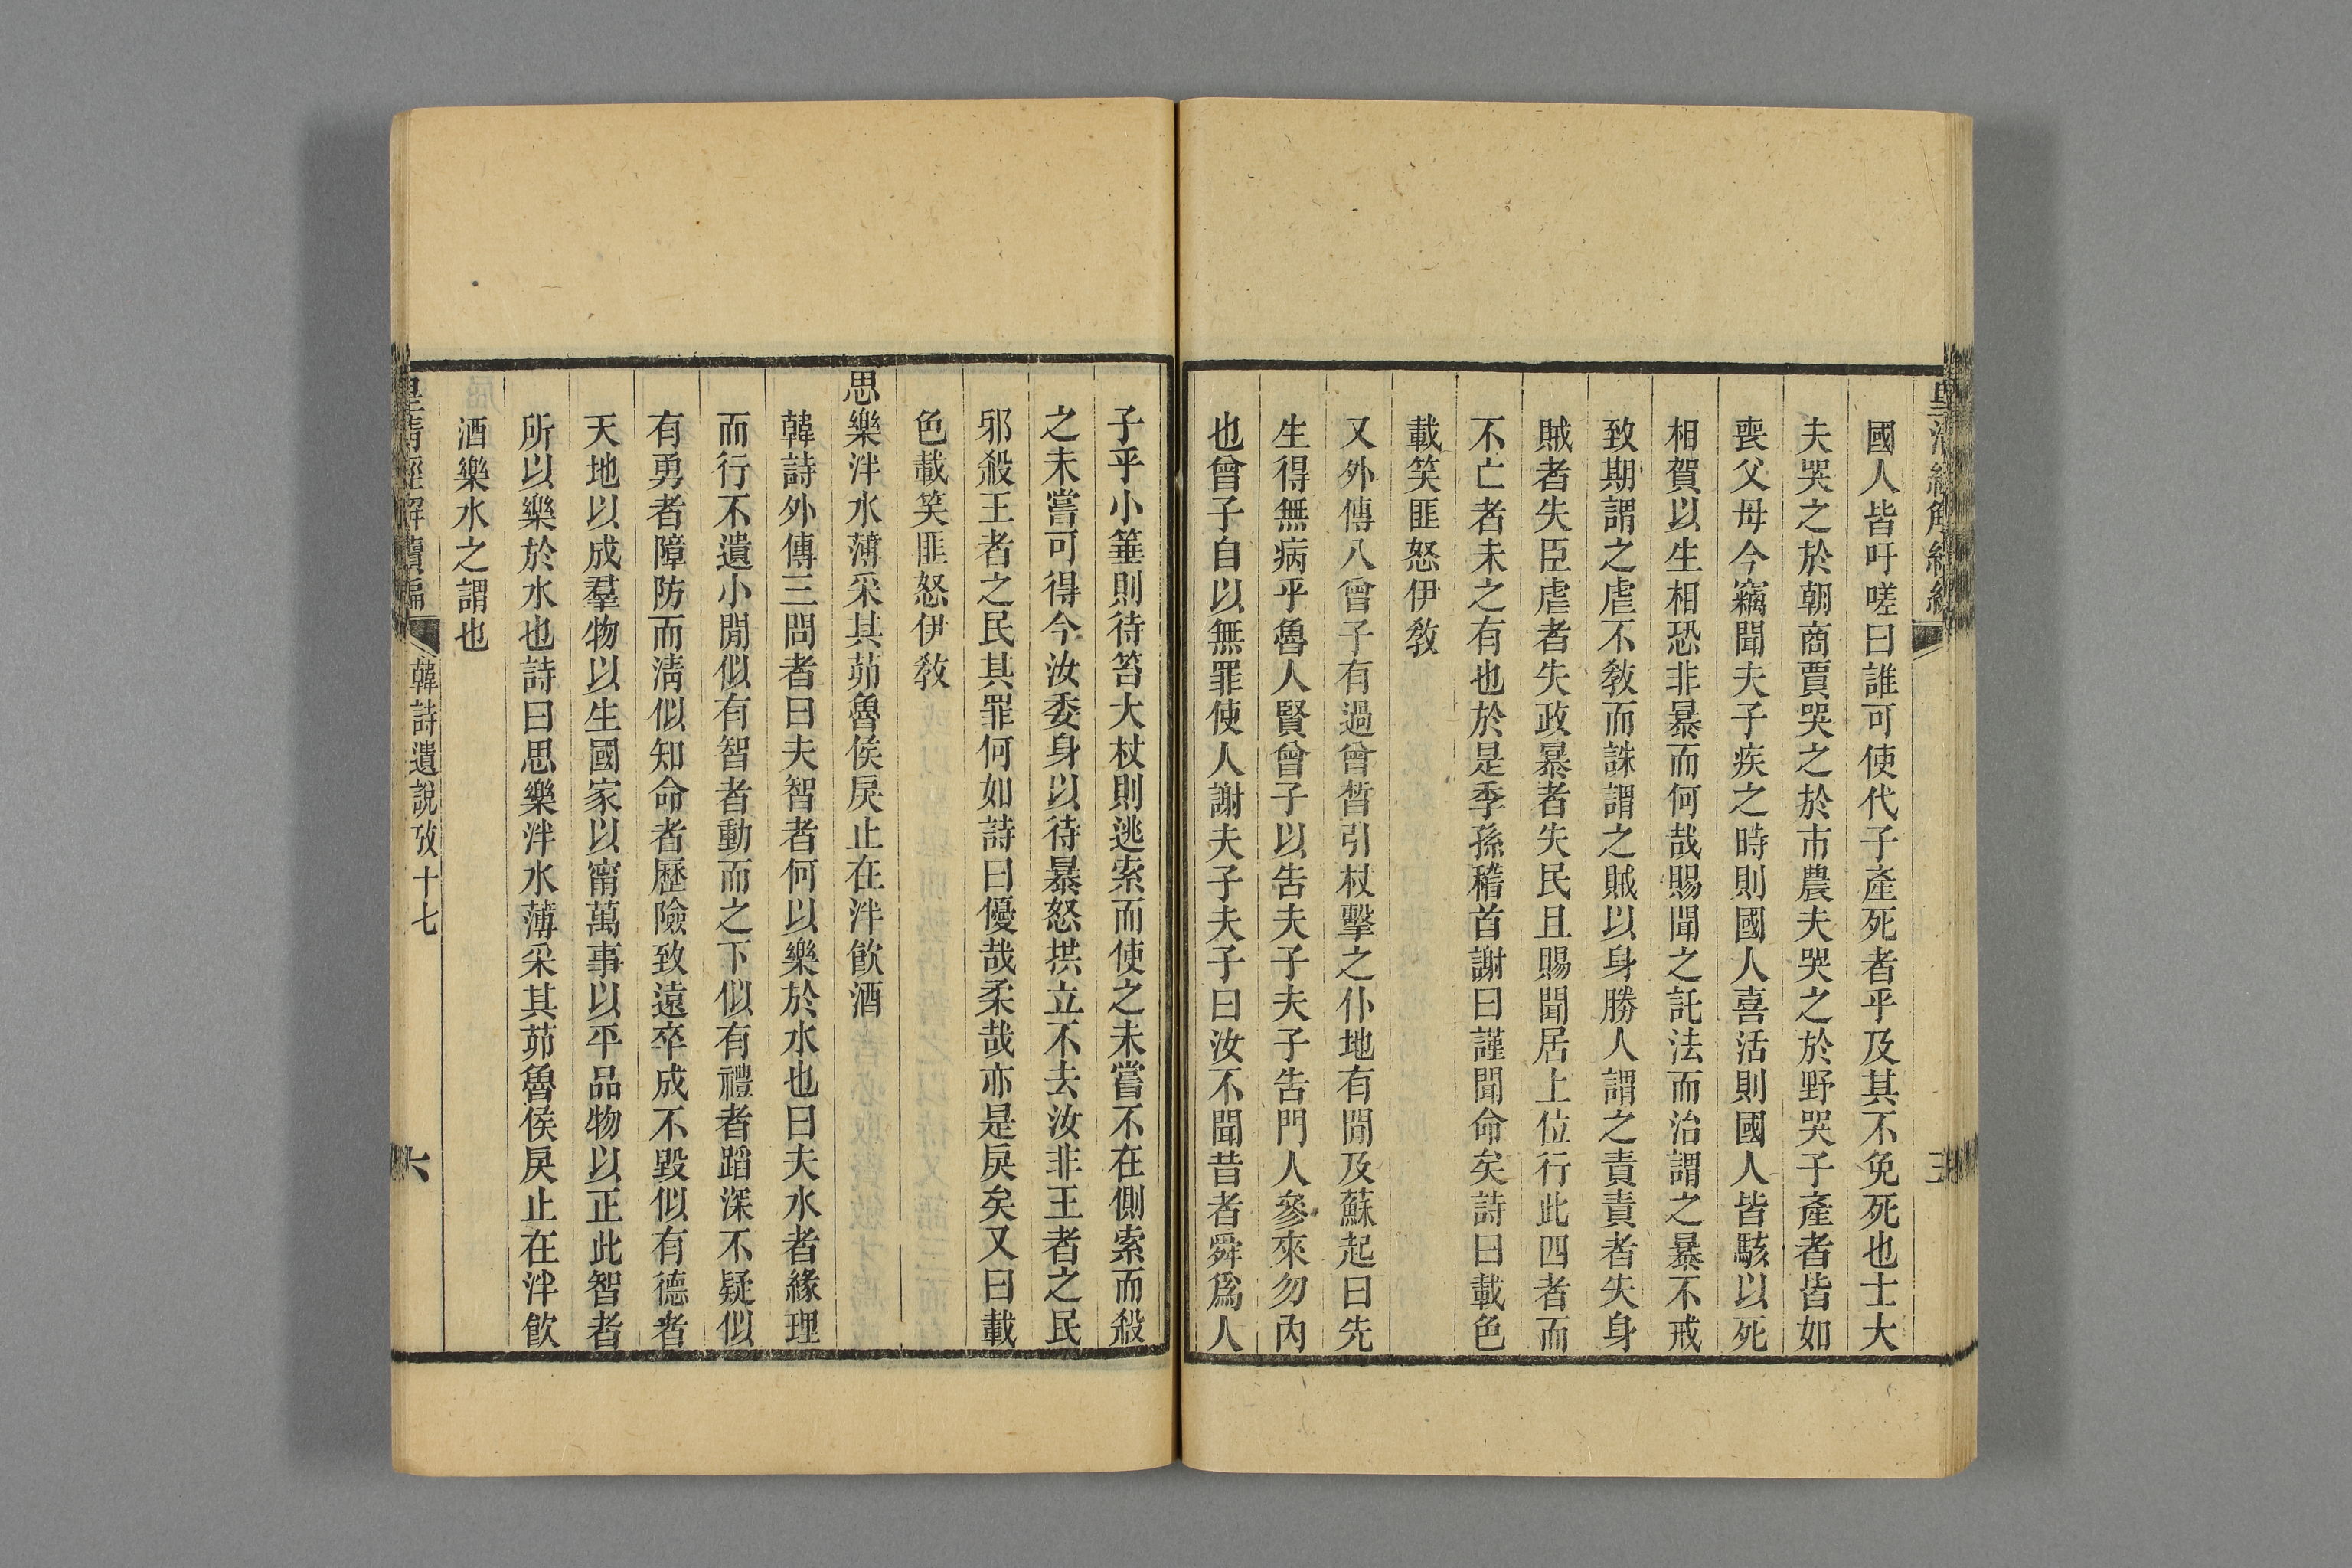 國人皆吁嗟曰誰可使代子產死者乎及其不免死也士大
夫哭之於朝商賈哭之於市農夫哭之於野哭子產者皆如
喪父母今竊聞夫子疾之時則國人喜活則國人皆駭以死
相賀以生相恐非暴而何哉賜聞之託法而治謂之暴不戒
致期謂之虐不敎而誅謂之賊以身勝人謂之責責者失身
賊者失臣虐者失政暴者失民且賜聞居上位行此四者而
不亡者未之有也於是季孫稽首謝曰謹聞命矣詩曰載色
載笑匪怒伊敎
又外傳八曾子有過曾晳引杖擊之仆地有閒及蘇起曰先
生得無病乎魯人賢曾子以告夫子夫子告門人參來勿內
也曾子自以無罪使人謝夫子夫子曰汝不聞昔者舜爲人
子乎小箠則待笞大杖則逃索而使之未嘗不在側索而殺
之未嘗可得今汝委身以待暴怒拱立不去汝非王者之民
邪殺王者之民其罪何如詩曰優哉柔哉亦是戾矣又曰載
色載笑匪怒伊敎
思樂泮水薄采其茆魯侯戾止在泮飮酒
韓詩外傳三問者曰夫智者何以樂於水也曰夫水者緣理
而行不遺小閒似有智者動而之下似有禮者蹈深不疑似
有勇者障防而淸似知命者歷險致遠卒成不毀似有德者
天地以成羣物以生國家以甯萬事以平品物以正此智者
所以樂於水也詩曰思樂泮水薄采其茆魯侯戾止在泮飮
酒樂水之謂也
皇清經解續編
韓詩遺說攷十七
六